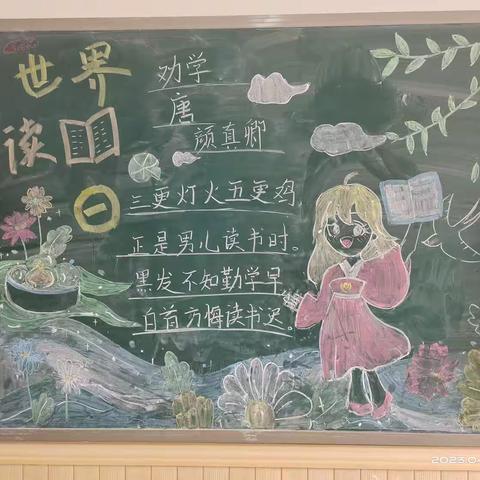 世界
读
日
劝学
唐
颜真卿
三更灯火五更鸡
正是男儿读书时。
黑发不知勤学早
白首方悔读书迟。